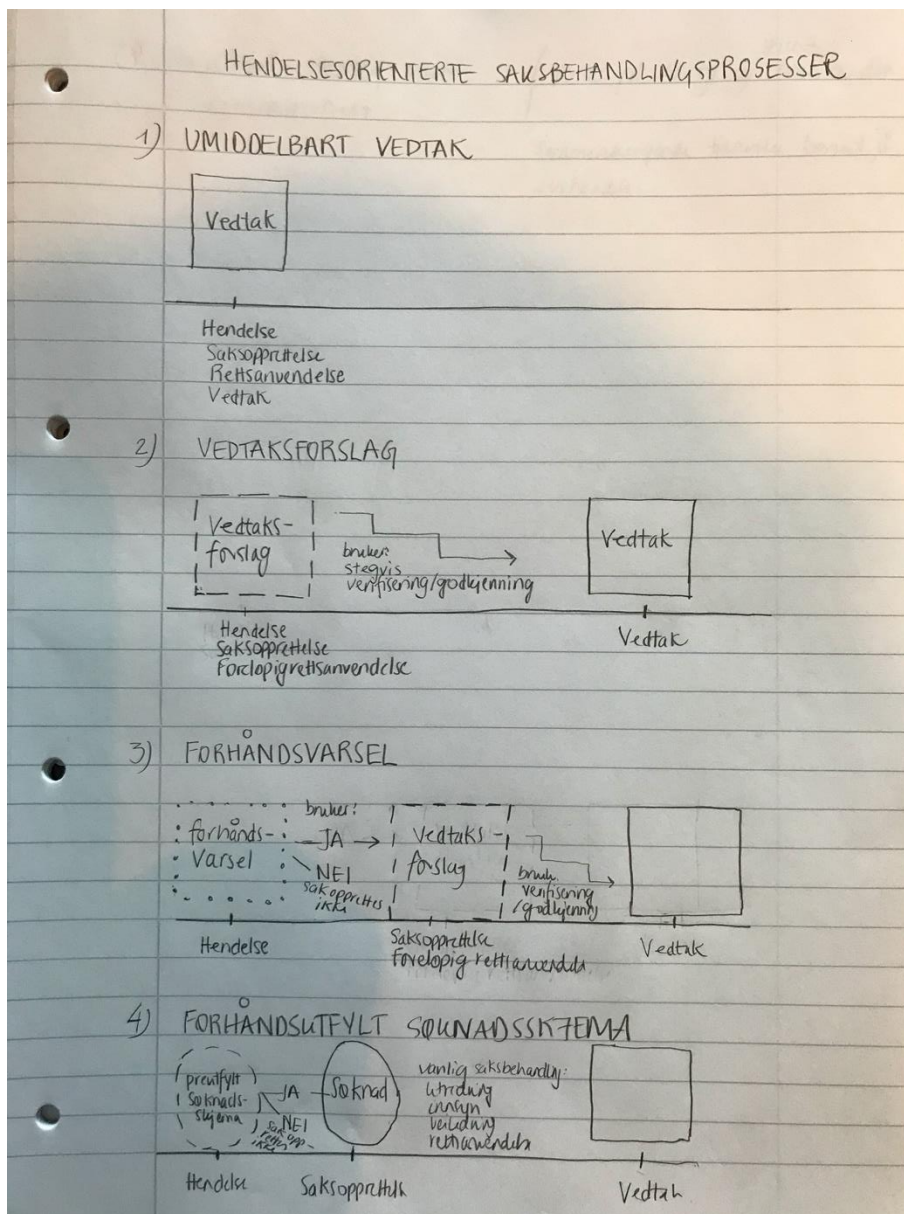 HENDELSESORIENTERTE SAKSBEHANDLINGSPROSESSER
1) UMIDDELBART VEDTAK
Vedtak
Hendelse
Saksopprettelse
Rettsanvendelse
Vedtak
2) VEDTAKSFORSLAG
Vedtaks-
forslag
bruker:
stegvis
verifisering/godkjenning
Vedtak
Hendelse
Saksopprettelse
Foreløpig rettsanvendelse
Vedtak
3) FORHÅNDSVARSEL
forhånds-
varsel
bruker:
JA
NEI
sak opprettes
ikke
Vedtaks-
forslag
bruk.
verifisering
/godkjenning
Hendelse
Saksopprettelse
Foreløpig rettsanvendelse
Vedtak
4) FORHÅNDSUTFYLT SØKNADSSKJEMA
preutfylt
Søknads-
skjema
JA
NEI
sak opp
rettes
ikke
Søknad
vanlig saksbehandling:
utredning
innsyn
veiledning
rettsanvendelse
Hendelse
Saksopprettelse
Vedtak